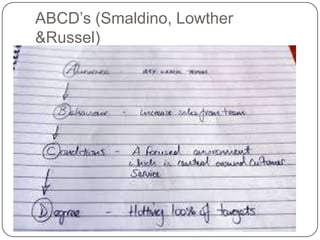 ABCD's (Smaldino, Lowther
&Russel)
Audience - my work team
Behaviour - increase sales from team
Conditions - A focused environment
which is central around customer
Service
Degree - Hitting 100% of targets